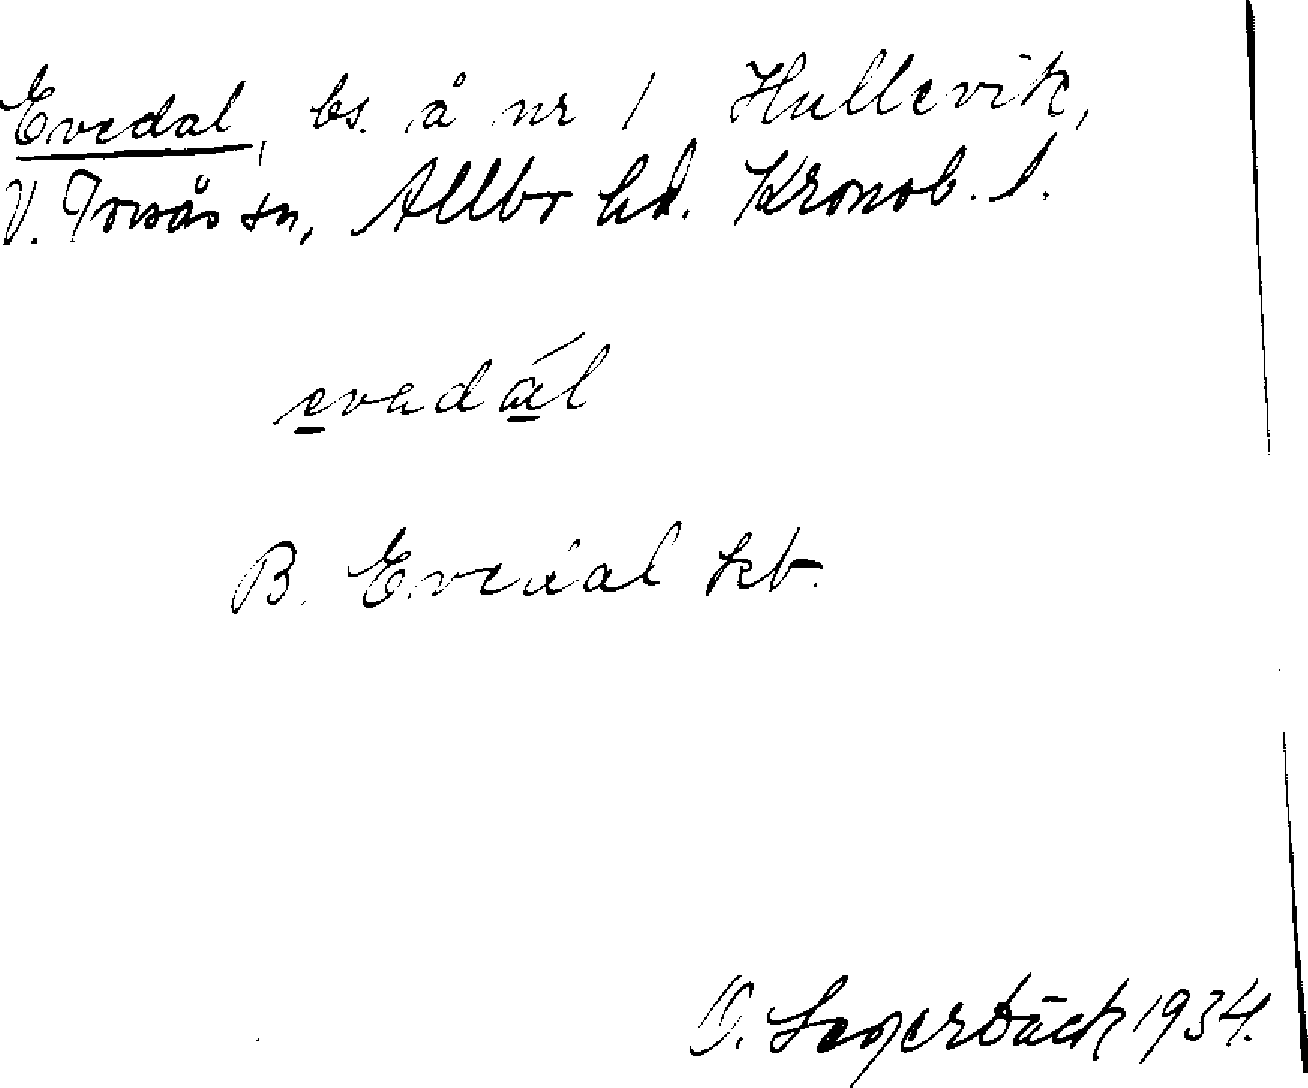 Evedal, bs. å nr 1 Hullevik,
V. Torsås sn, Allbo hd. Kronob. l.
evadál
B. Evedal kb.
O. Lagerbäck 1934.